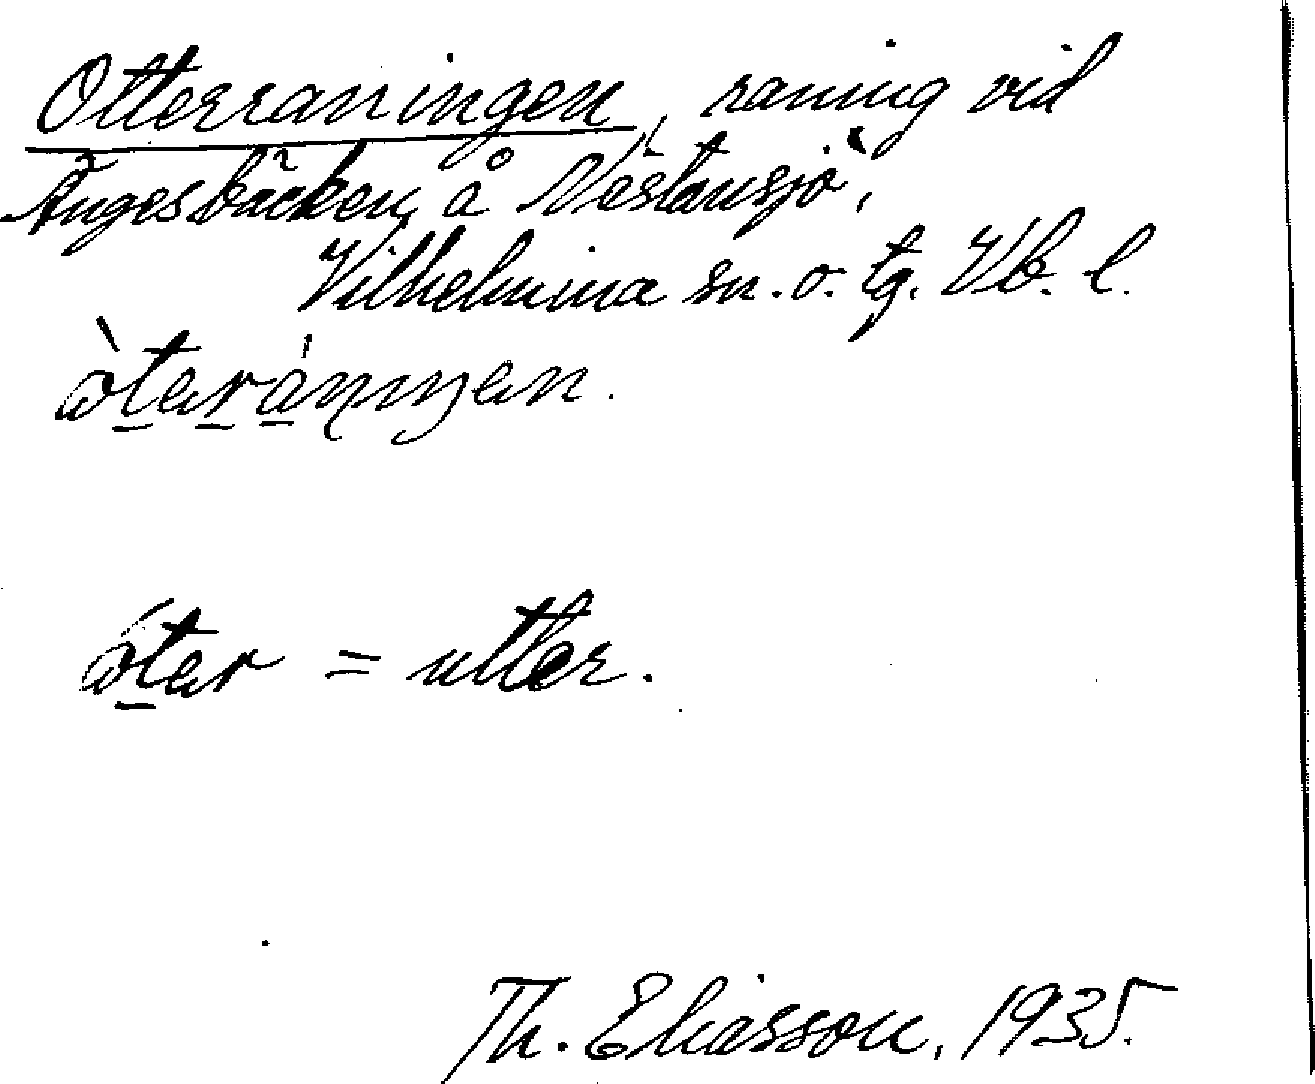 Otterraningen, raning vid
Ängesbäcken, å Nästansjö,
Vilhelmina sn. o. tg. Vb. l.
òterániŋen.
óter = utter.
Th. Eliasson, 1935.